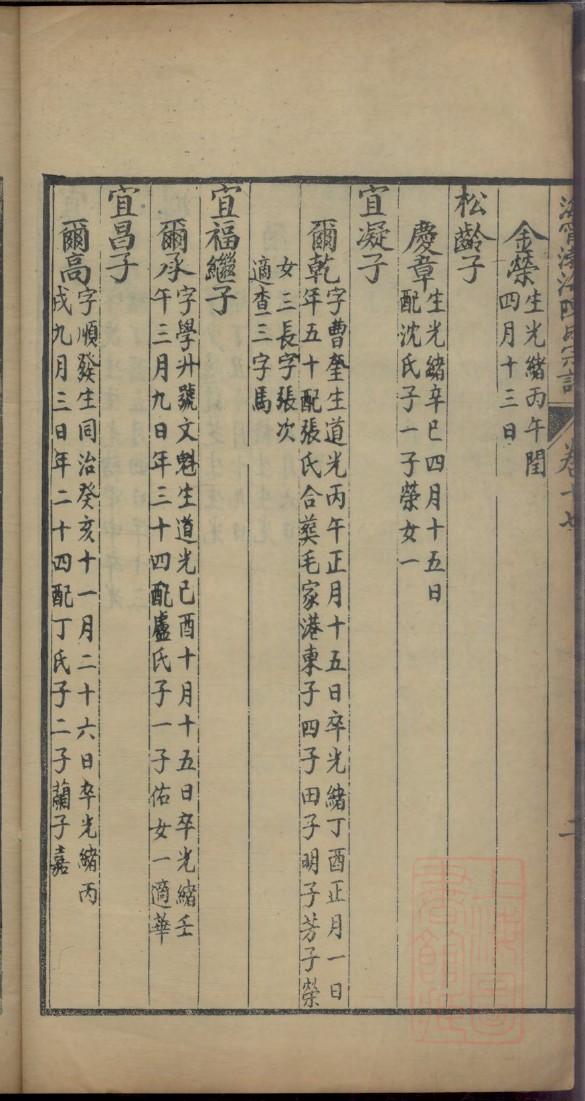 卷十七
二
金榮
生光緒丙午閏
四月十三日
松齡子
慶章
生光緒辛巳四月十五日
配沈氏子一子榮女一
宜凝子
爾乾
字曹奎生道光丙午正月十五日卒光緒丁酉正月一日
年五十配張氏合葬毛家港東子四子田子明子芳子榮
女三長字張次
適查三字馬
宜福繼子
爾承
字學升號文魁生道光己酉十月十五日卒光緒壬
午三月九日年三十四配盧氏子一子佑女一適華
宜昌子
爾高
字順發生同治癸亥十一月二十六日卒光緒丙
戌九月三日年二十四配丁氏子二子蘭子嘉